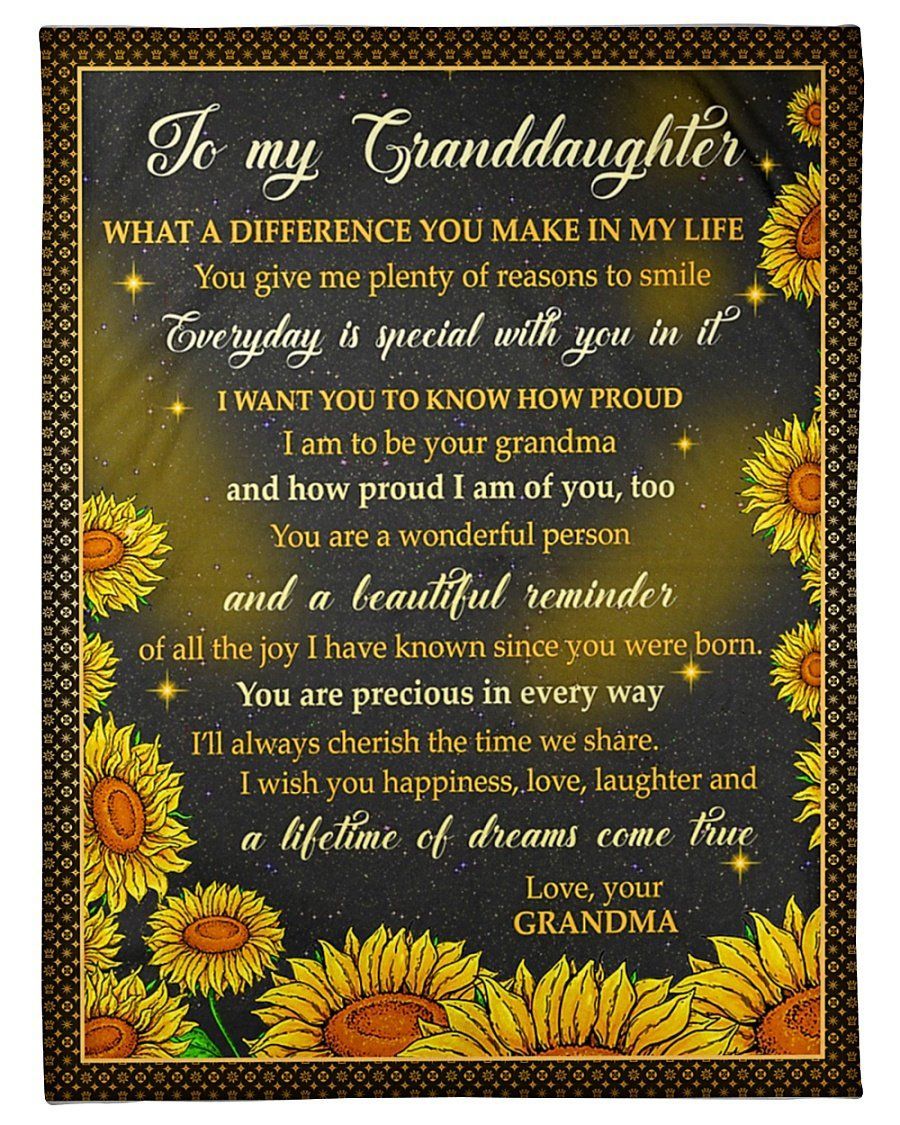 To my Granddaughter
WHAT A DIFFERENCE YOU MAKE IN MY LIFE
You give me plenty of reasons to smile
Everyday is special with you in it
I WANT YOU TO KNOW HOW PROUD
I am to be your grandma
and how proud I am of you, too
You are a wonderful person
and a beautiful reminder
of all the joy I have known since you were born.
You are precious in every way
I'll always cherish the time we share.
I wish you happiness, love, laughter and
a lifetime of dreams come true
Love, your
GRANDMA